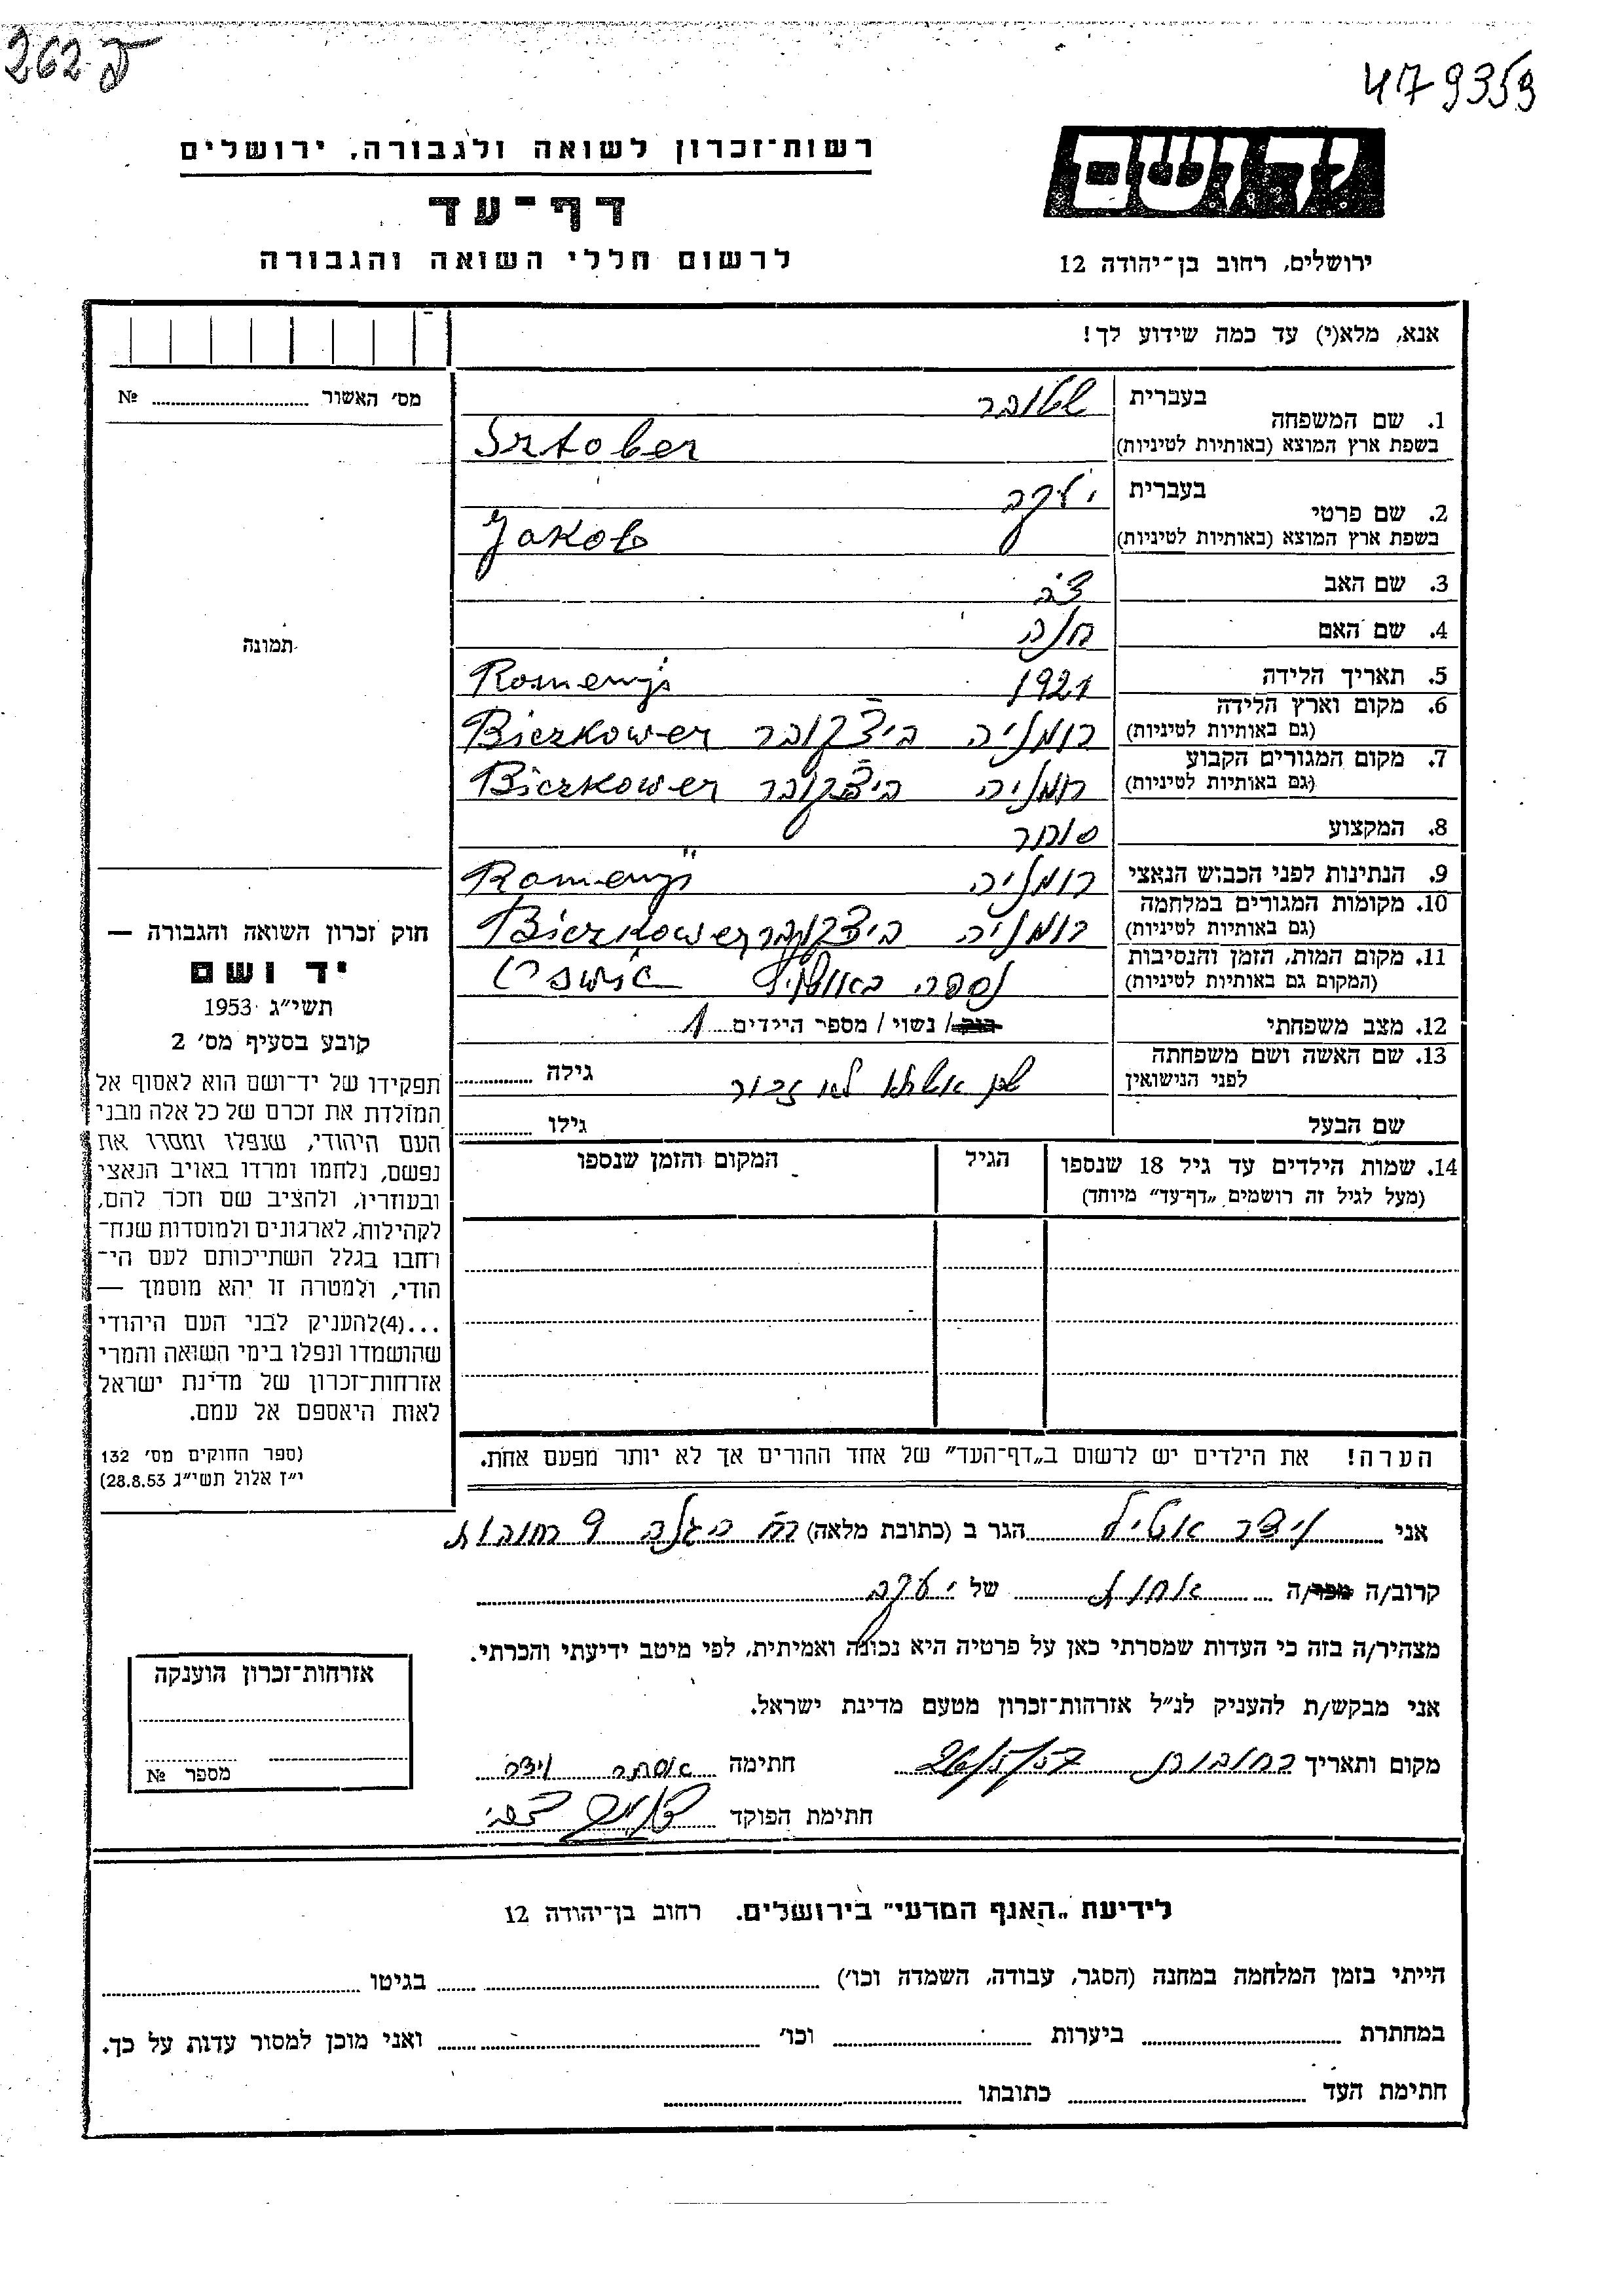 262 ק
479353
יד ושם
ירושלים, רחוב בן־יהודה 12
רשות־זכרון לשואה ולגבורה, ירושלים
דף־עד
לרשום חללי השואה והגבורה
אנא, מלא(י) עד כמה שידוע לך!
מס׳ האשור № 
תמונה
1. שם המשפחה בעברית שטובר
בשפת ארץ המוצא (באותיות לטיניות) Srtober
2. שם פרטי בעברית יעקב
בשפת ארץ המוצא (באותיות לטיניות) Jakob
3. שם האב צבי
4. שם האם חנה
5. תאריך הלידה 1921 Romenji
6. מקום וארץ הלידה רומניה ביצקובר Bierkower
(גם באותיות לטיניות)
7. מקום המגורים הקבוע רומניה ביצקובר Bierkower
(גם באותיות לטיניות)
8. המקצוע סוחר
9. הנתינות לפני הכבוש הנאצי רומניה Romenji
10. מקומות המגורים במלחמה רומניה ביצקובר Bierkower
(גם באותיות לטיניות)
11. מקום המות, הזמן והנסיבות נספה
(המקום גם באותיות לטיניות)
12. מצב משפחתי רווק / נשוי / מספר הילדים 1
13. שם האשה ושם משפחתה לפני הנישואין שם לא זכור גילה
שם הבעל גילו
14. שמות הילדים עד גיל 18 שנספו הגיל המקום והזמן שנספו
(מעל לגיל זה רושמים „דף־עד” מיוחד)
הערה! את הילדים יש לרשום ב„דף־העד” של אחד ההורים אך לא יותר מפעם אחת.
חוק זכרון השואה והגבורה —
יד ושם
תשי״ג 1953
קובע בסעיף מס׳ 2
תפקידו של יד־ושם הוא לאסוף אל
המולדת את זכרם של כל אלה מבני
העם היהודי, שנפלו ומסרו את
נפשם, נלחמו ומרדו באויב הנאצי
ובעוזריו, ולהציב שם וזכר להם,
לקהילות, לארגונים ולמוסדות שנח־
רחבו בגלל השתייכותם לעם הי־
הודי, ולמטרה זו יהא מוסמך —
...(4)להעניק לבני העם היהודי
שהושמדו ונפלו בימי השואה והמרי
אזרחות־זכרון של מדינת ישראל
לאות היאספם אל עמם.
(ספר החוקים מס׳ 132
י״ז אלול תשי״ג 28.8.53)
אני וידר הגר ב (כתובת מלאה) רח׳ 9 רחובות
קרוב/ה מכר/ה אחות של יעקב
מצהיר/ה בזה כי העדות שמסרתי כאן על פרטיה היא נכונה ואמיתית, לפי מיטב ידיעתי והכרתי.
אני מבקש/ת להעניק לנ״ל אזרחות־זכרון מטעם מדינת ישראל.
מקום ותאריך רחובות 26/5/57 חתימה אסתר וידר
חתימת הפוקד
אזרחות־זכרון הוענקה
מספר №
לידיעת „האגף המדעי” בירושלים. רחוב בן־יהודה 12
הייתי בזמן המלחמה במחנה (הסגר, עבודה, השמדה וכו׳) בגיטו
במחתרת ביערות וכו׳ ואני מוכן למסור עדות על כך.
חתימת העד כתובתו